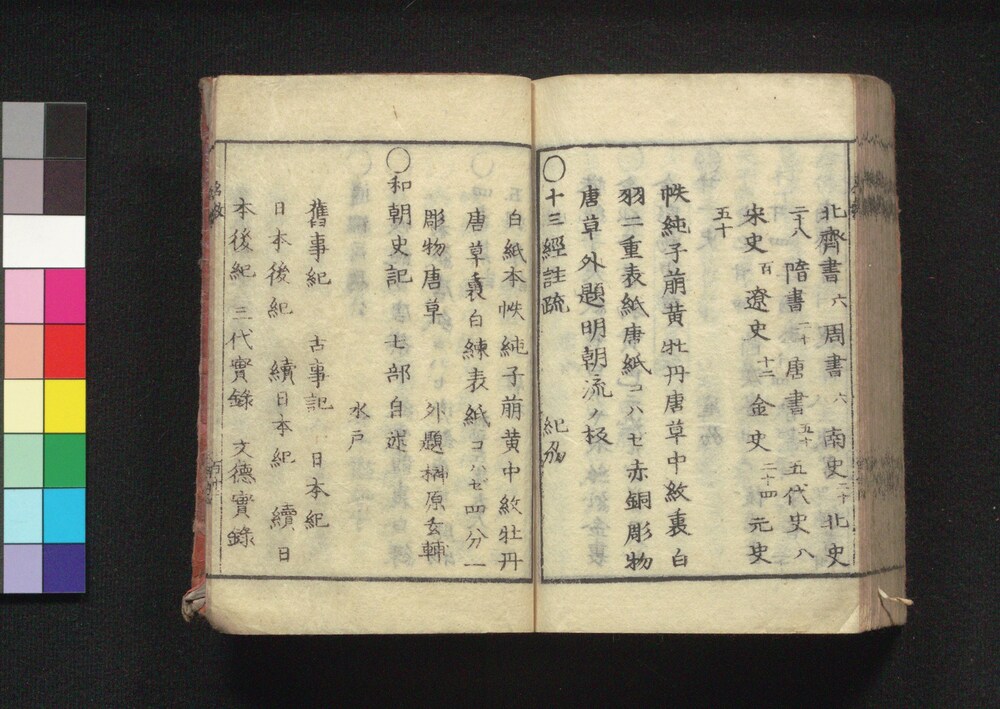 北齊書 六 周書 六 南史 二十 北史
二十八 隋書 二十 唐書 五十 五代史 八
宋史 百 遼史 十二 金史 二十四 元史
五十
帙純子萠黄牡丹唐草中紋裏白
羽二重表紙唐紙コハゼ赤銅彫物
唐草外題明朝流ノ板
〇十三經註疏 紀刕
白紙本帙純子萠黄中紋牡丹
唐草裏白練表紙コハゼ四分一
彫物唐草 外題榊原玄輔
〇和朝史記 七部自述
水戸
舊事紀 古事記 日本紀
日本後紀 續日本紀 續日
本後紀 三代實錄 文德實錄